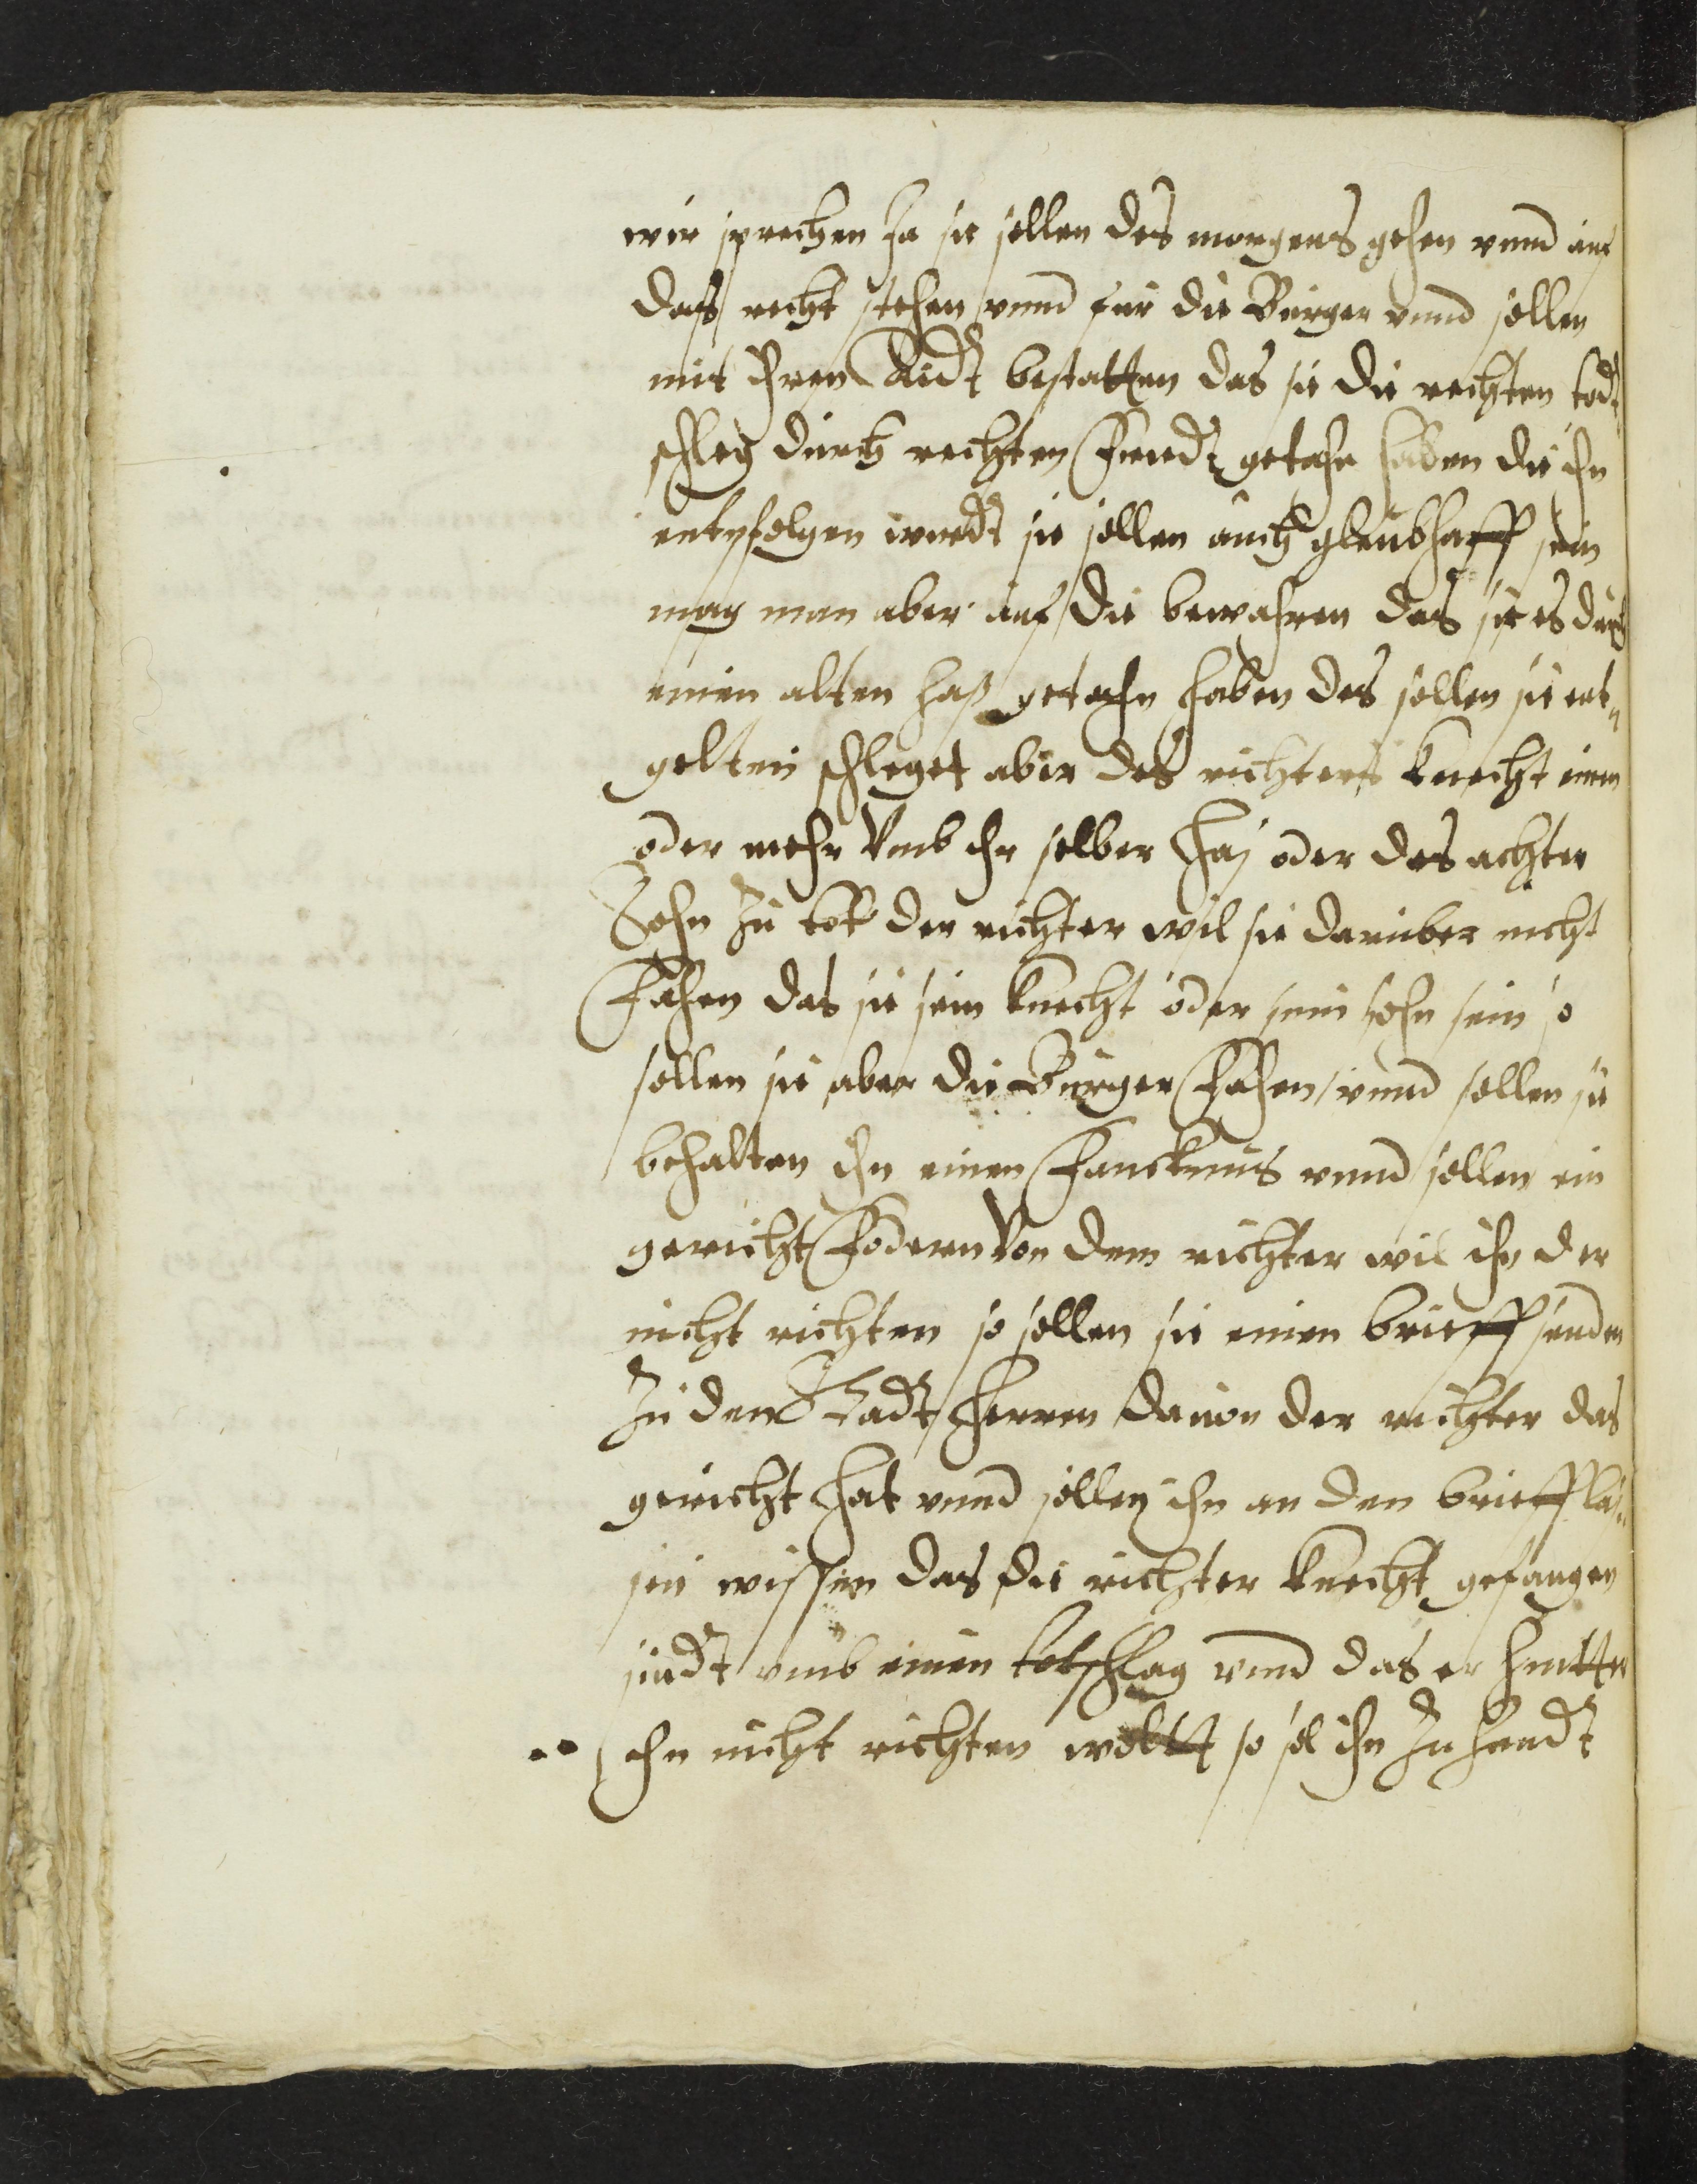 wir sprechen Ja sie sollen des morgens gehen vnnd auf
dass recht stehen vnnd für die Bürger vnnd sollen
mit ihren Aidt bestatten das sie die rechten todt
schleg durch rechten Friedt getahn haben die ihn
entpfolgen wirdt sie sollen auch gleubhafft sein
mag man aber auf die bewahren das sie es durch
einen alten haß getahn haben des sollen sie ent-
gelten schleget aber des richters knecht einen
oder mehr Vmb ihr selber haß oder des achter
Sohn zu tot der richter wil sie darüber nicht
Fahen das sie sein knecht oder sein sohn sein so
sollen sie aber die Bürger Fahen vnnd sollen sie
behalten ihn einen Fancknus vnnd sollen ein
gericht Fodern Von dem richter wil ihn der
nicht richten so sollen sie einen brieff senden
Zu den Stadt Herren dauon der richter das
gericht hat vnnd sollen ihn an den brieff las-
sen wissen das die richter knecht gefangen
sindt vmb einen totschlag vnnd das er
ihn nicht richten woltt so sol ihn Zu handt